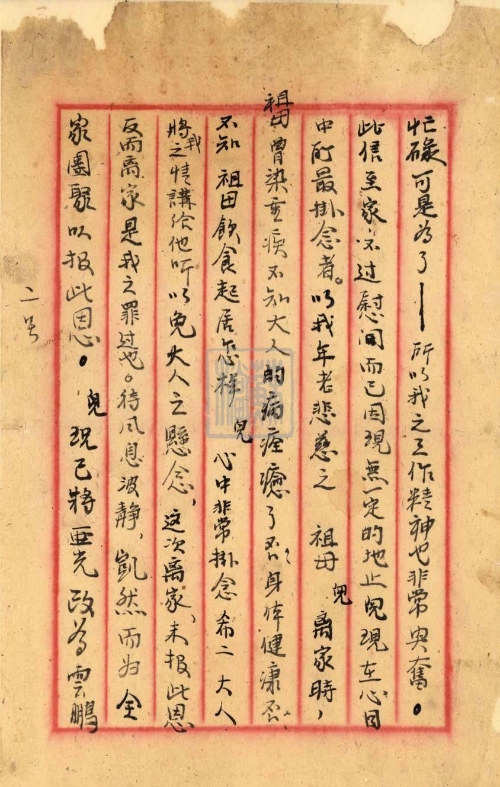 忙碌可是為了——所以我之工作精神也非常兴奮。
此信至家不过慰问而已因現無一定的地止兒現在心目
中所最掛念者。以我年老悲慈之 祖母 兒 离家時，
祖母曾染重疾不知大人的病痊癒了否，身体健康否，
不知 祖母飲食起居怎樣 兒 心中非常掛念希二大人
將我之情講給他听以免大人之懸念，这次离家，未报此恩
反而离家是我之罪过也。待风息波静，凱然而归 全
家團聚以报此恩。兒 現已將亜光改為雲鵬
二号